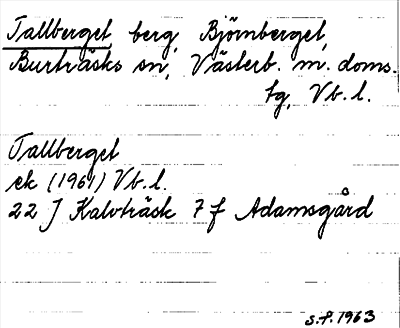 Tallberget berg, Björnberget,
Burträsks sn, Västerb. m. doms.
tg, Vb. l.
Tallberget
ek (1961) Vb. l.
22 J Kalvträsk 7 f Adamsgård
S.F. 1963